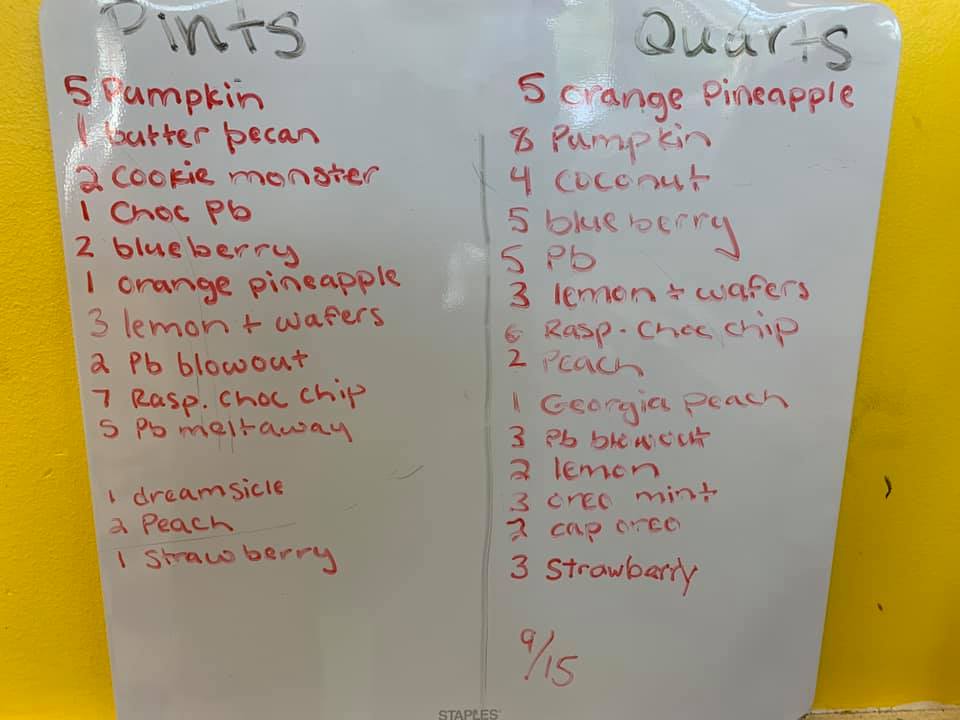 Pints
5 Pumpkin
1 butter pecan
2 cookie monster
1 Choc Pb
2 blueberry
1 orange pineapple
3 lemon + wafers
2 Pb blowout
7 Rasp. Choc chip
5 Pb meltaway
1 dreamsicle
2 Peach
1 Strawberry
Quarts
5 orange Pineapple
8 Pumpkin
4 coconut
5 blueberry
5 Pb
3 lemon + wafers
6 Rasp. Choc chip
2 Peach
1 Georgia Peach
3 Pb blowout
2 lemon
3 oreo mint
2 cap oreo
3 Strawberry
9/15
STAPLES